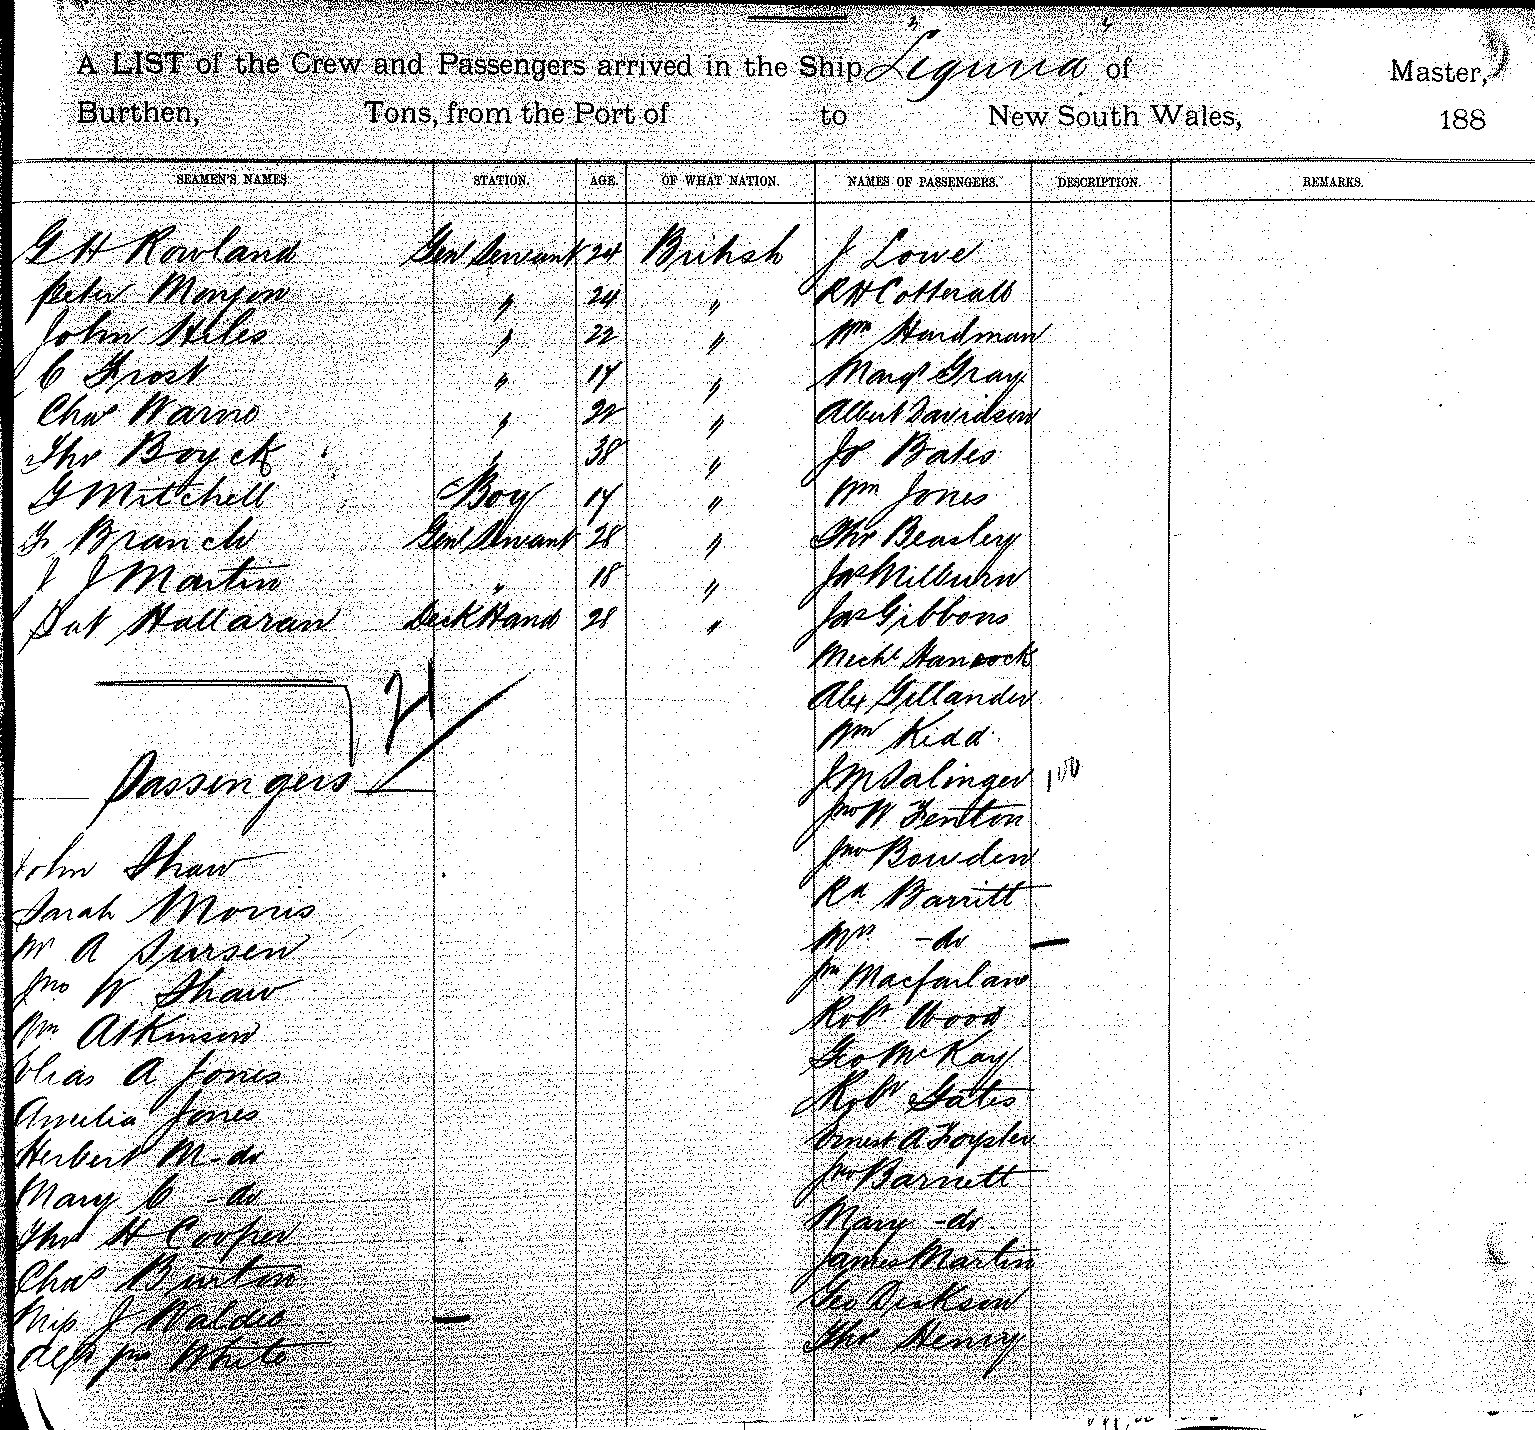 A LIST of the Crew and Passengers arrived in the Ship Liguria of Master,
Burthen, Tons, from the Port of to New South Wales, 188
SEAMEN'S NAMES. STATION. AGE. OF WHAT NATION. NAMES OF PASSENGERS. DESCRIPTION. REMARKS.
G H Rowland Genl Servant 24 British J Lowe
Peter " 24 " R H Cotterall
John Hiles " 22 " Wm Hardman
C Frost " 17 " Margt Gray
Chas Warne " 22 " Albert Davidson
Thos Boyck " 38 " Jos Bates
G Mitchell Boy 17 " Wm Jones
F Branch Genl Servant 28 " Thos Beasley
J J Martin " 18 " Jas Milburn
Pat Hallaran Deck Hand 28 " Jas Gibbons
Michl Hancock
21
Alex Gillander
Wm Kidd
Passengers
J M Salinger
Jno W Fenton
John Shaw
Jno Bowden
Sarah Morris
Rd Barritt
Mr A
Mrs - do
Jno W Shaw
Jn Macfarlane
Wm Atkinson
Robt Wood
Elias A Jones
Geo McKay
Amelia Jones
Robt Gates
Herbert M - do
Ernest A Foyster
Mary C - do
Jno Barnett
Thos H Cooper
Mary - do
Chas Burton
James Martin
Miss J Waldie
Geo Dickson
Alex Jas White
Thos Henry